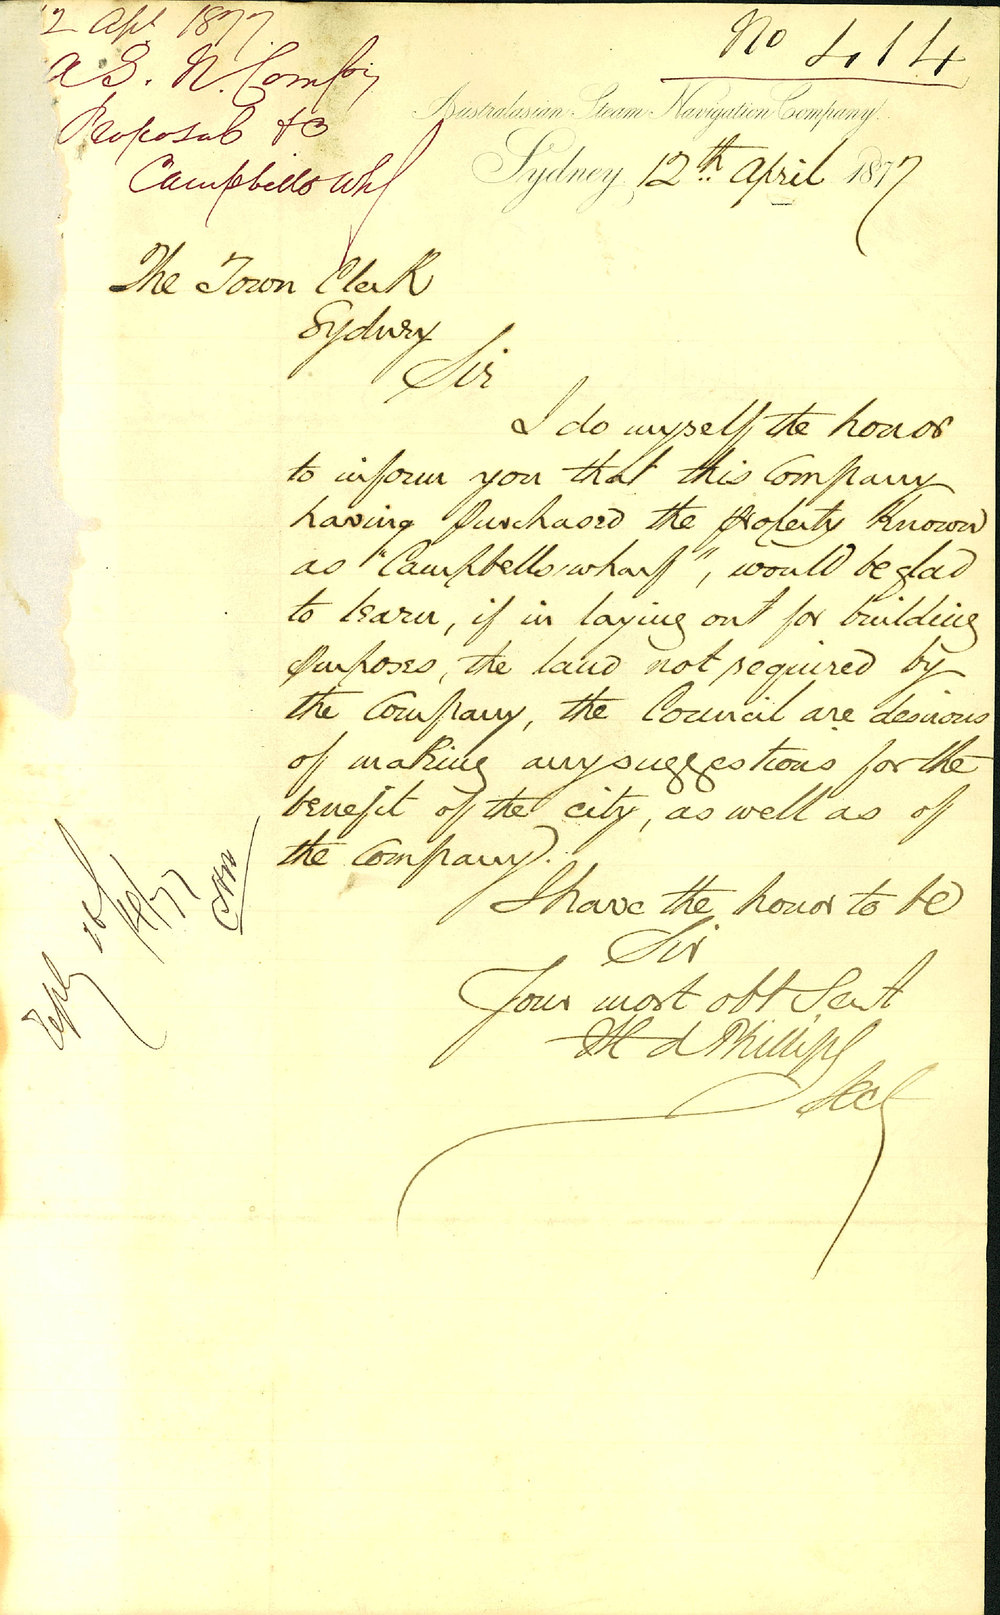 12 Apl 1877
A.S.N. Compy
Proposal to
Campbells Whf
No 414
Australasian Steam Navigation Company
Sydney, 12th April 1877
The Town Clerk
Sydney
Sir
I do myself the honor
to inform you that this Company
having purchased the property known
as "Campbells wharf", would be glad
to learn, if in laying out for building
purposes, the land not required by
the Company, the Council are desirous
of making any suggestions for the
benefit of the city, as well as of
the Company.
I have the honor to be
Sir
Your most obt Servt
Phillips
Secy
Reply